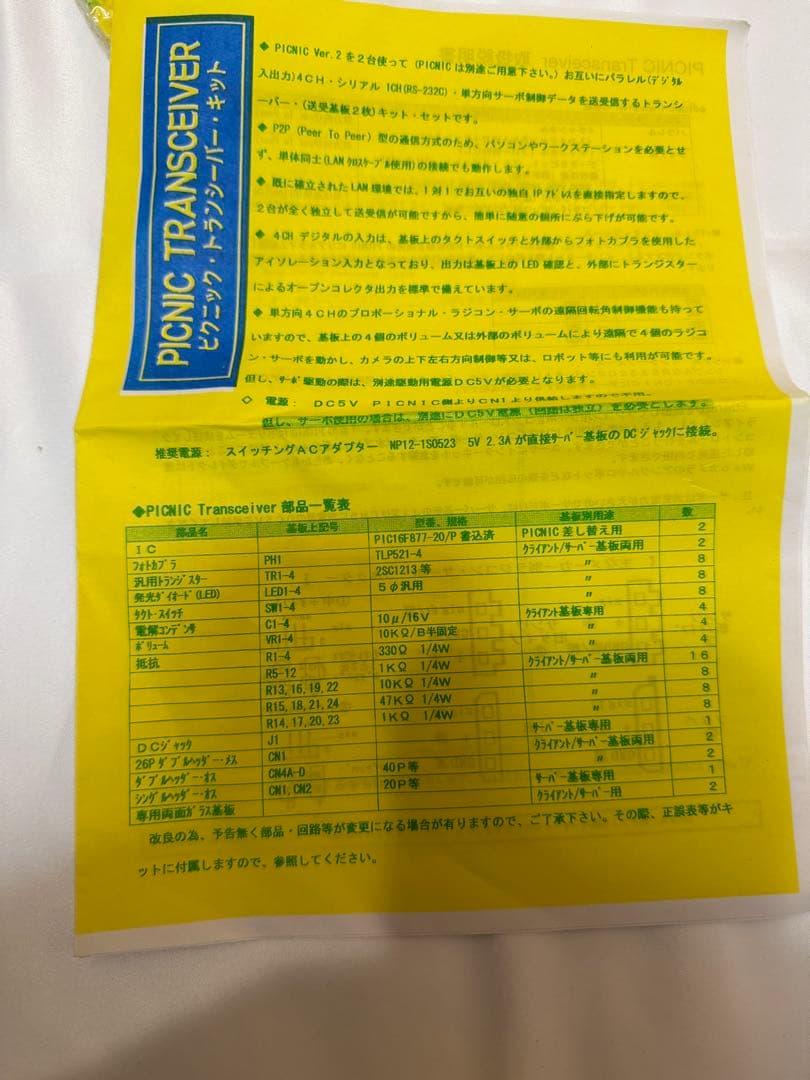 PICNIC TRANSCEIVER
ピクニック・トランシーバー・キット
◆ PICNIC Ver.2 を2台使って (PICNIC は別途ご用意下さい。) お互いにパラレル(デジタル
入出力)4CH・シリアル 1CH(RS-232C)・単方向サーボ制御データを送受信するトランシ
ーバー・(送受基板2枚)キット・セットです。
◆ P2P (Peer To Peer) 型の通信方式のため、パソコンやワークステーションを必要とせ
ず、単体同士(LAN クロスケーブル使用)の接続でも動作します。
◆ 既に確立された LAN 環境では、1対1でお互いの独自 IP アドレスを直接指定しますので、
2台が全く独立して送受信が可能ですから、簡単に随意の個所にぶら下げが可能です。
◆ 4CH デジタルの入力は、基板上のタクトスイッチと外部からフォトカプラを使用した
アイソレーション入力となっており、出力は基板上の LED 確認と、外部にトランジスター
によるオープンコレクタ出力を標準で備えています。
◆ 単方向4CHのプロポーショナル・ラジコン・サーボの遠隔回転角制御機能も持って
いますので、基板上の4個のボリューム又は外部のボリュームにより遠隔で4個のラジコ
ン・サーボを動かし、カメラの上下左右方向制御等又は、ロボット等にも利用が可能です。
但し、サーボ駆動の際は、別途駆動用電源DC5Vが必要となります。
◇ 電源: DC5V PICNIC側よりCN1より供給しますので不用。
但し、サーボ使用の場合は、別途にDC5V電源(回路は独立)を必要とします。
推奨電源: スイッチングACアダプター NP12-1S0523 5V 2.3A が直接サーバー基板のDCジャックに接続。
◆PICNIC Transceiver 部品一覧表
部品名 基板上記号 型番、規格 基板別用途 数
IC PIC16F877-20/P 書込済 PICNIC差し替え用 2
フォトカプラ PH1 TLP521-4 クライアント/サーバー基板両用 2
汎用トランジスター TR1-4 2SC1213等 〃 8
発光ダイオード(LED) LED1-4 5φ汎用 〃 8
タクト・スイッチ SW1-4 〃 8
電解コンデンサ C1-4 10μ/16V クライアント基板専用 4
ボリューム VR1-4 10KΩ/B半固定 〃 4
抵抗 R1-4 330Ω 1/4W 〃 4
R5-12 1KΩ 1/4W クライアント/サーバー基板両用 16
R13,16,19,22 10KΩ 1/4W 〃 8
R15,18,21,24 47KΩ 1/4W 〃 8
R14,17,20,23 1KΩ 1/4W 〃 8
DCジャック J1 サーバー基板専用 1
26Pダブルヘッダー・メス CN1 クライアント/サーバー基板両用 2
ダブルヘッダー・オス CN4A-D 40P等 〃 2
シングルヘッダー・オス CN1,CN2 20P等 サーバー基板専用 1
専用両面ガラス基板 クライアント/サーバー用 2
改良の為、予告無く部品・回路等が変更になる場合が有りますので、ご了承下さい。その際、正誤表等がキ
ットに付属しますので、参照してください。